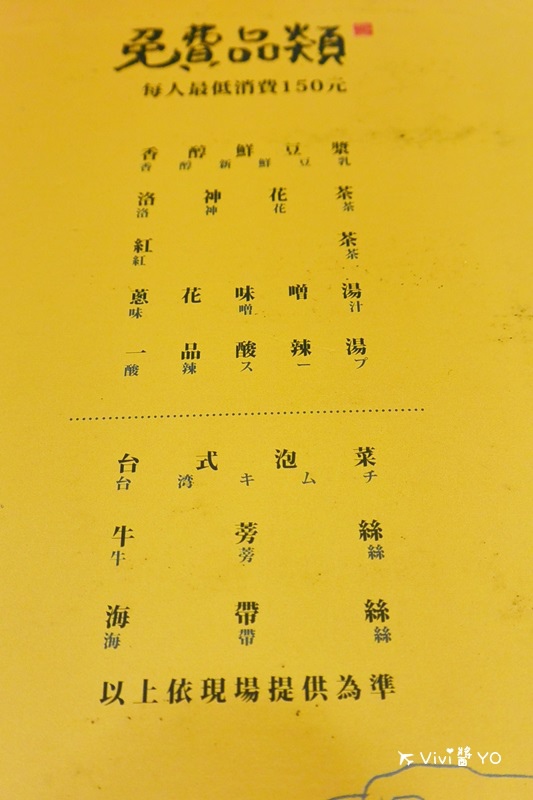 免費品類
每人最低消費150元
香醇鮮豆漿
香醇新鮮豆乳
洛神花茶
洛神花茶
紅茶
紅茶
蔥花味噌湯
味噌汁
一品酸辣湯
酸辣スープ
台式泡菜
台湾キムチ
牛蒡絲
牛蒡絲
海帶絲
海帶絲
以上依現場提供為準
Vivi醬YO